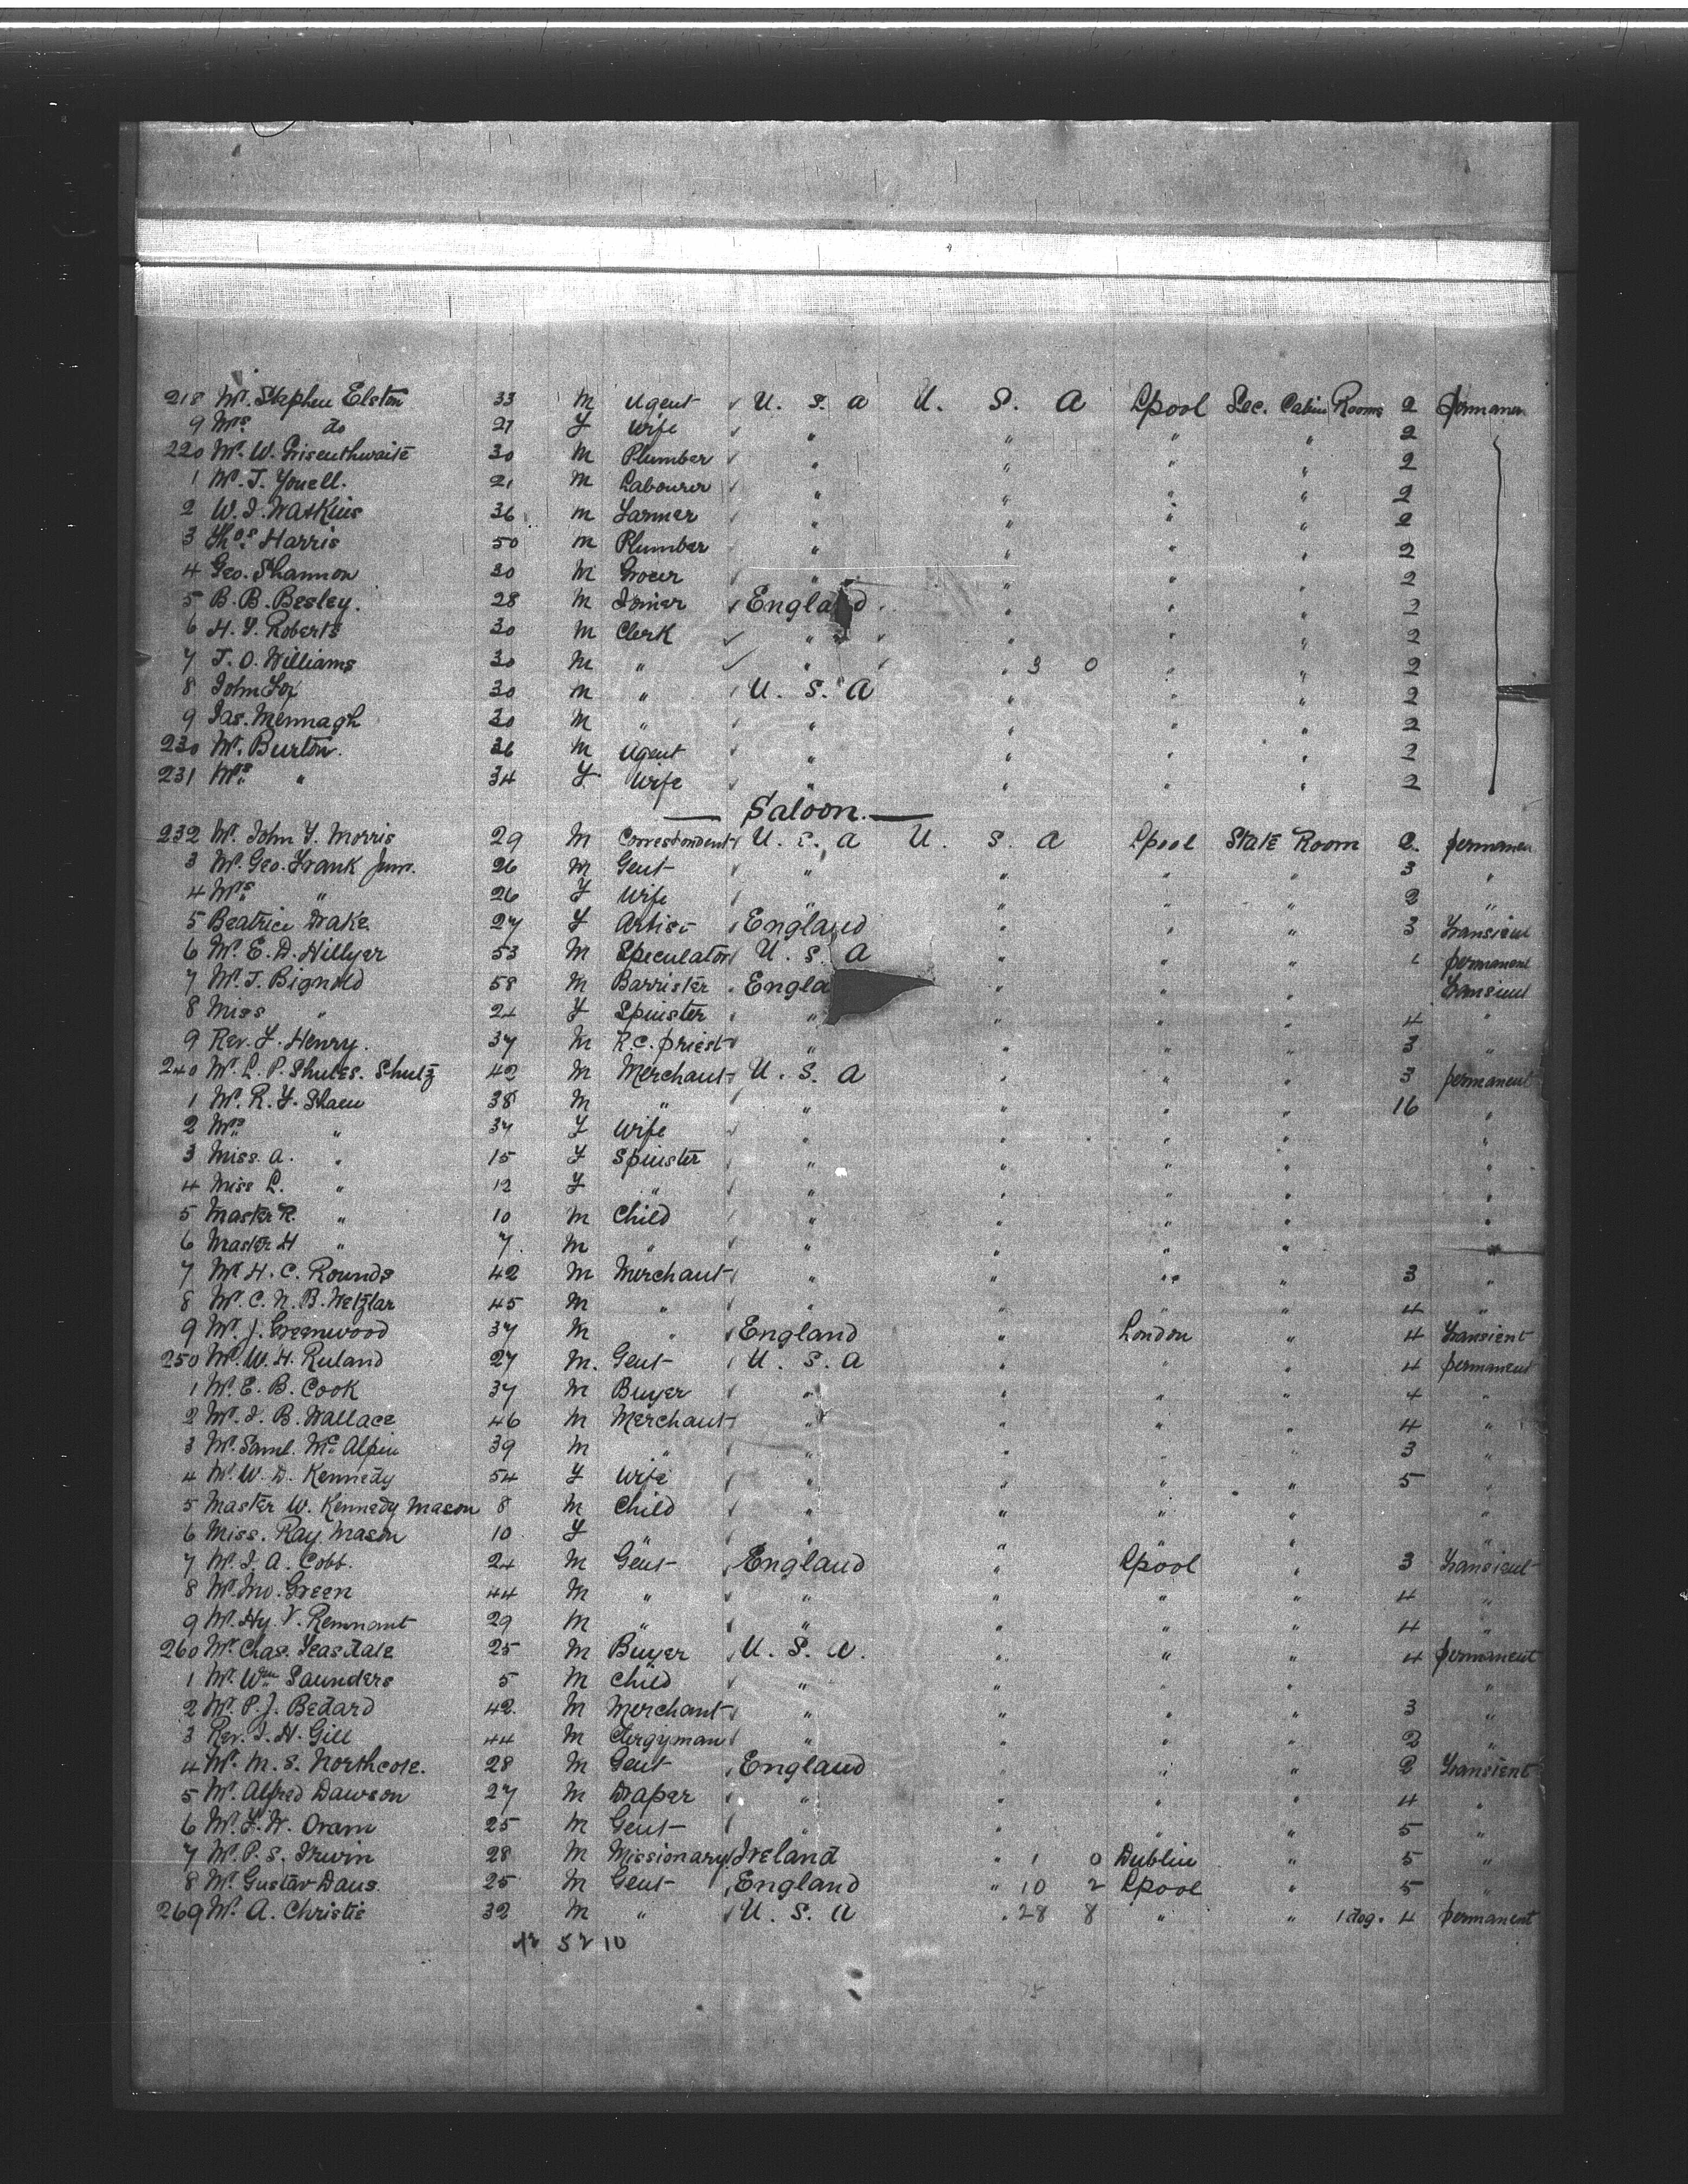 218 Mr. Stephen Elston 33 M Agent U. S. A U. S. A Lpool Sec. Cabin Rooms 2 permanen
9 Mrs. do 27 F Wife " " " " 2
220 Mr. W. Grisenthwaite 30 M Plumber " " " " 2
1 Mr. J. Youell. 21 M Labourer " " " " 2
2 W. J. Watkins 36 M Farmer " " " " 2
3 Thos. Harris 50 M Plumber " " " " 2
4 Geo. Shannon 30 M Grocer " " " " 2
5 B. B. Besley. 28 M Joiner England " " " 2
6 H. F. Roberts 30 M Clerk " " " " 2
7 J. O. Williams 30 M " " " 3 0 " " 2
8 John Fox 30 M " U. S. A " " " 2
9 Jas. Mennagh 30 M " " " " " 2
230 Mr. Burton. 36 M Agent " " " " 2
231 Mrs. " 34 F. Wife " " " " 2
Saloon.
232 Mr. John F. Morris 29 M Correspondent U. S. A U. S. A Lpool State Room 2. permanen
3 Mr. Geo. Frank Junr. 26 M Gent " " " " 3 "
4 Mrs. " 26 F Wife " " " " 2 "
5 Beatrice Drake 27 F Artist England " " " 3 Transient
6 Mr. E. D. Hillyer 53 M Speculator U. S. A " " " 1 permanent
7 Mr. J. Bignold 58 M Barrister Engla " " " Transient
8 Miss " 24 F Spinster " " " " 4 "
9 Rev. F. Henry. 37 M R.C. priest " " " " 3 "
240 Mr. L. P. Shultes. Shultz 42 M Merchant U. S. A " " " 3 permanent
1 Mr. R. F. Shaen 38 M " " " " " 16 "
2 Mrs. " 37 F Wife " " " " "
3 Miss. A. " 15 F Spinster " " " " "
4 Miss L. " 12 F " " " " " "
5 Master R. " 10 M Child " " " " "
6 Master H " 7. M " " " " " "
7 Mr H. C. Rounds 42 M Merchant " " " " 3 "
8 Mr. C. N. B. Wetzlar 45 M " " " " " 4 "
9 Mr. J. Greenwood 37 M " England " London " 4 Transient
250 Mr. W. H. Ruland 27 M. Gent U. S. A " " " 4 permanent
1 Mr. E. B. Cook 37 M Buyer " " " " 4 "
2 Mr. J. B. Wallace 46 M Merchant " " " " 4 "
3 Mr. Saml. McAlpin 39 M " " " " " 3 "
4 Mr. W. D. Kennedy 54 F Wife " " " " 5 "
5 Master W. Kennedy Mason 8 M Child " " " " "
6 Miss. Ray Mason 10 F " " " " " "
7 Mr. J. A. Cobb. 24 M Gent England " Lpool " 3 Transient
8 Mr. Jno. Green 44 M " " " " " 4 "
9 Mr. Hy. V. Remnant 29 M " " " " " 4 "
260 Mr. Chas. Teasdale 25 M Buyer U. S. A. " " " 4 permanent
1 Mr. Wm Saunders 5 M Child " " " " "
2 Mr. P. J. Bedard 42. M Merchant " " " " 3 "
3 Rev. J. H. Gill 44 M Clergyman " " " " 2 "
4 Mr. M. S. Northcote. 28 M Gent England " " " 2 Transient
5 Mr. Alfred Dawson 27 M Draper " " " " 4 "
6 Mr. F. W. Oram 25 M Gent " " " " 5 "
7 Mr. P. S. Irwin 28 M Missionary Ireland " 1 0 Dublin " 5 "
8 Mr. Gustav Daus. 25 M Gent England " 10 2 Lpool " 5 "
269 Mr. A. Christie 32 M " U. S. A " 28 8 " " 1 dog. 4 permanent
52 10